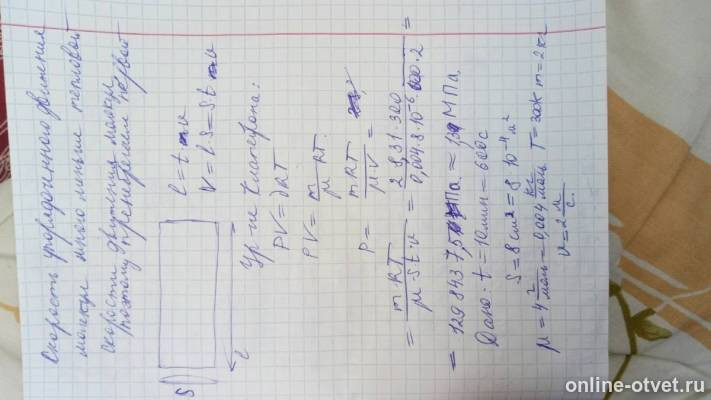 Скорость упорядоченного движения
молекул много меньше тепловой
скорости движения молекул,
поэтому пренебрегаем первой
S
l
l = t v
V = lS = St v
Ур-ие Клапейрона:
PV = νRT
PV = m/μ RT.
P = mRT/μV =
= m·RT/μ·St·v = 2·8,31·300/0,004·8·10⁻⁶·600·2 =
= 1298437,5 Па ≈ 1,3 МПа.
Дано: t = 10 мин = 600 с
S = 8 см² = 8 10⁻⁴ м²
μ = 4 г/моль = 0,004 кг/моль T = 300К m = 2 кг
v = 2 м/с.
online-otvet.ru